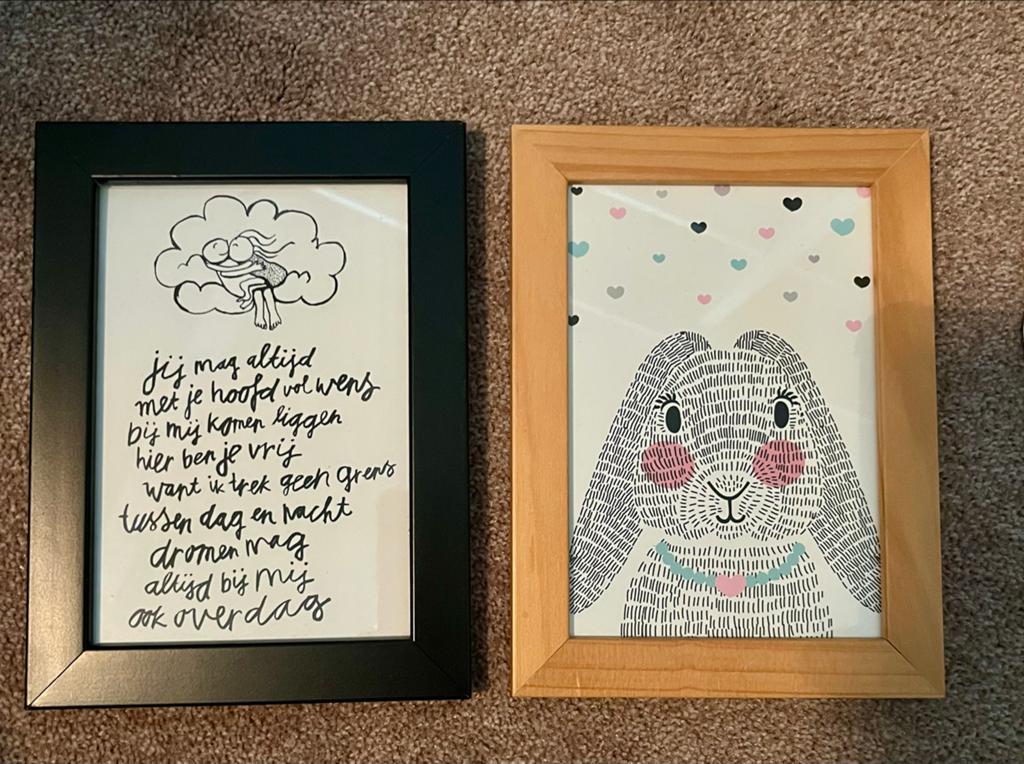 jij mag altijd
met je hoofd vol wens
bij mij komen liggen
hier ben je vrij
want ik trek geen grens
tussen dag en nacht
dromen mag
altijd bij mij
ook overdag